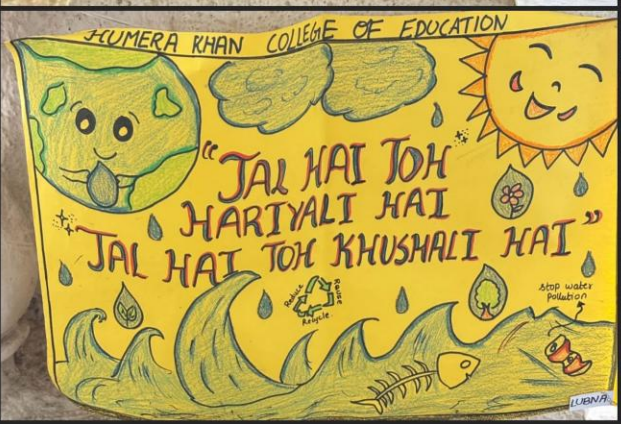 HUMERA KHAN COLLEGE OF EDUCATION
"JAL HAI TOH
HARIYALI HAI
JAL HAI TOH KHUSHALI HAI"
Reduce
Reuse
Recycle.
stop water
pollution
LUBNA